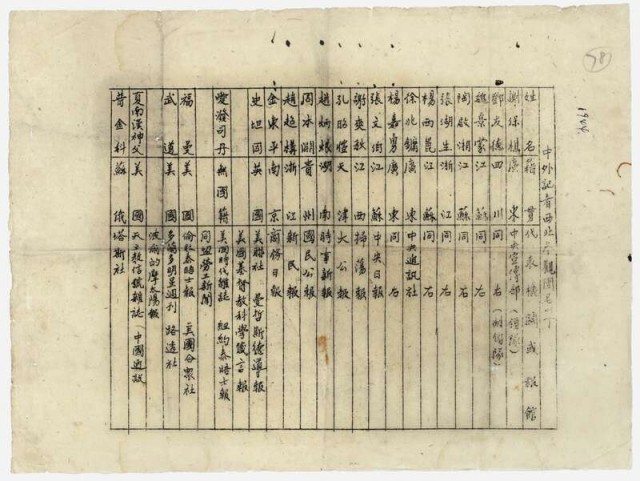 1944
78
中外記者西北參觀團名單
姓名 籍貫 代表機關或報館
謝保樵 廣東 中央宣傳部（領隊）
鄧友德 四川 同右（副領隊）
魏景蒙 江蘇 同右
陶啟湘 江蘇 同右
張湖生 浙江 同右
楊西崑 江蘇 同右
徐兆鏞 廣東 中央通訊社
楊嘉勇 廣東 同右
張文伯 江蘇 中央日報
謝爽秋 江西 掃蕩報
孔昭愷 天津 大公報
趙炳烺 湖南 時事新報
周本淵 貴州 國民公報
趙超構 浙江 新民報
金東平 南京 商務日報
史坦因 英國 美聯社 曼哲斯德導報
美國基督教科學箴言報
愛潑司丹 無國籍 美國時代雜誌 紐約泰晤士報
同盟勞工新聞
福曼 美國 倫敦泰晤士報 美國合眾社
武道 美國 多倫多明星週刊 路透社
波爾的摩太陽報
夏南漢神父 美國 天主教信號雜誌（中國通訊）
普金科 蘇俄 塔斯社